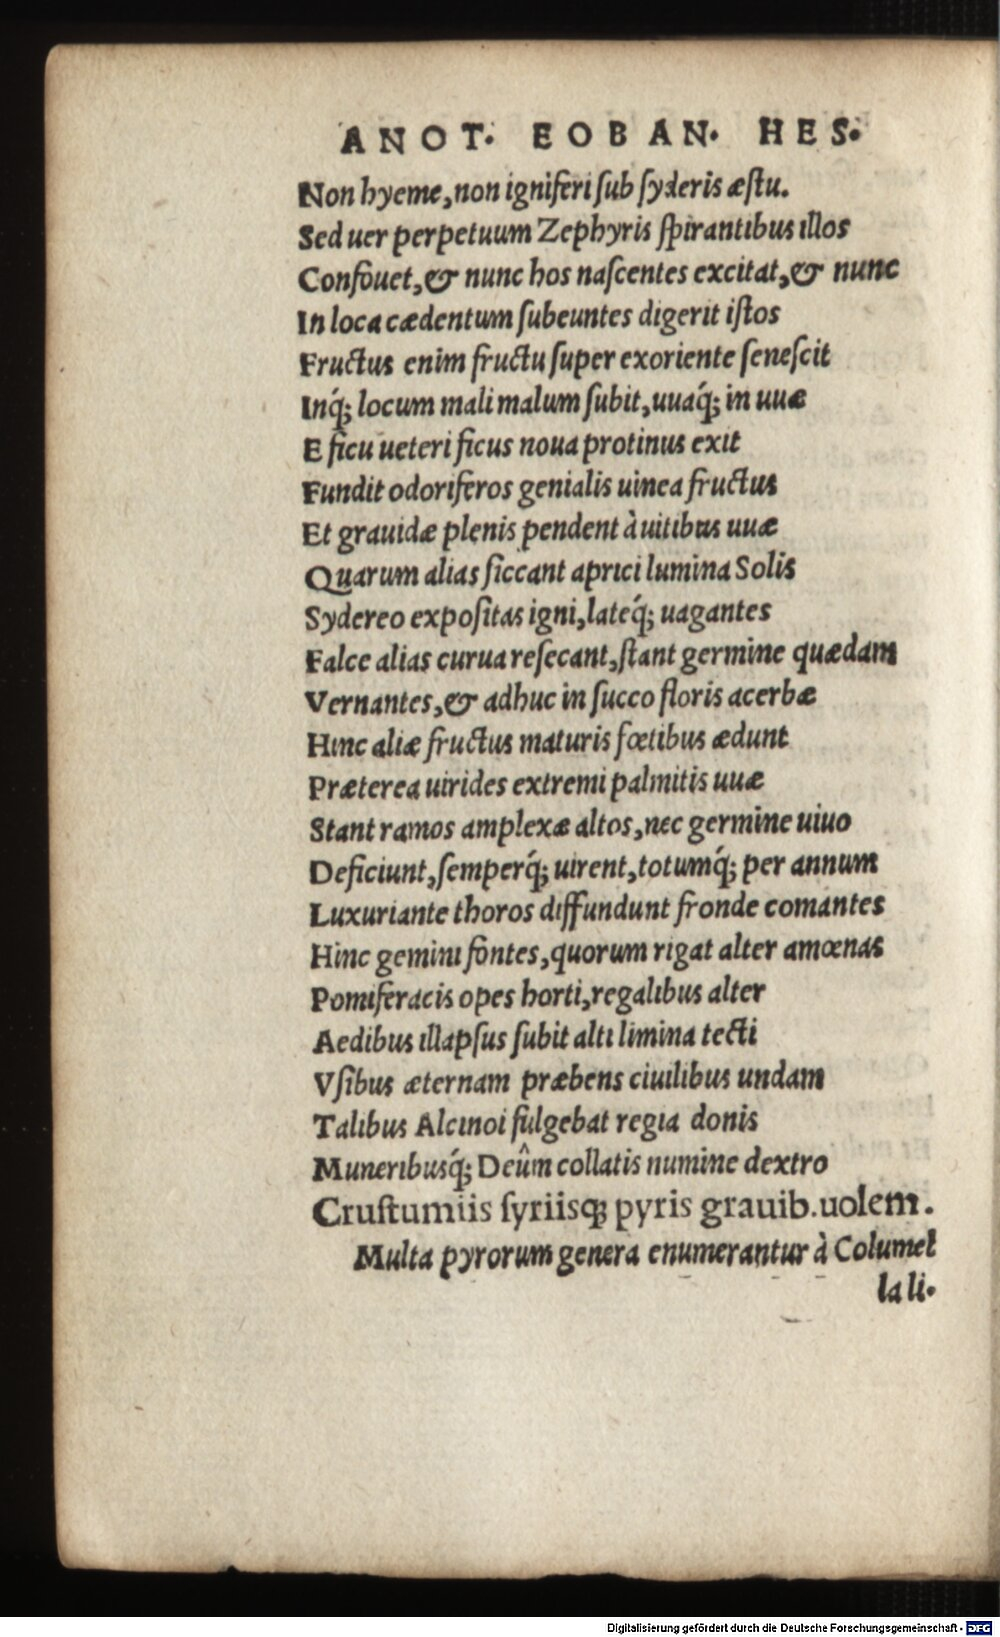 ANOT. EOBAN. HES.
Non hyeme, non igniferi ſub ſyderis æſtu.
Sed uer perpetuum Zephyris ſpirantibus illos
Confouet, & nunc hos naſcentes excitat, & nunc
In loca cædentum ſubeuntes digerit iſtos
Fructus enim fructu ſuper exoriente ſeneſcit
Inq́; locum mali malum ſubit, uuaq́; in uuæ
E ficu ueteri ficus noua protinus exit
Fundit odoriferos genialis uinea fructus
Et grauidæ plenis pendent à uitibus uuæ
Quarum alias ſiccant aprici lumina Solis
Sydereo expoſitas igni, lateq́; uagantes
Falce alias curua reſecant, ſtant germine quædam
Vernantes, & adhuc in ſucco floris acerbæ
Hinc aliæ fructus maturis fœtibus ædunt
Præterea uirides extremi palmitis uuæ
Stant ramos amplexæ altos, nec germine uiuo
Deficiunt, ſemperq́; uirent, totumq́; per annum
Luxuriante thoros diffundunt fronde comantes
Hinc gemini fontes, quorum rigat alter amœnas
Pomiferacis opes horti, regalibus alter
Aedibus illapſus ſubit alti limina tecti
Vſibus æternam præbens ciuilibus undam
Talibus Alcinoi fulgebat regia donis
Muneribusq́; Deûm collatis numine dextro
Cruſtumiis ſyriisq; pyris grauib. uolem.
Multa pyrorum genera enumerantur à Columel
la li.
Digitalisierung gefördert durch die Deutsche Forschungsgemeinschaft - DFG